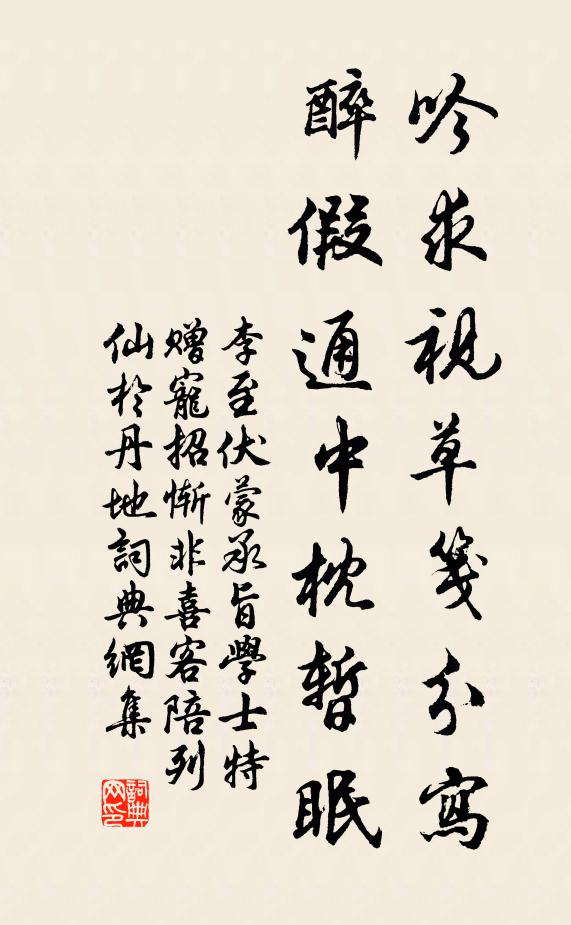 吟求視草箋分寫
醉假通中枕暫眠
李至伏蒙承旨學士特
贈寵招慚非喜客陪列
仙於丹地詞典網集
詞典网印